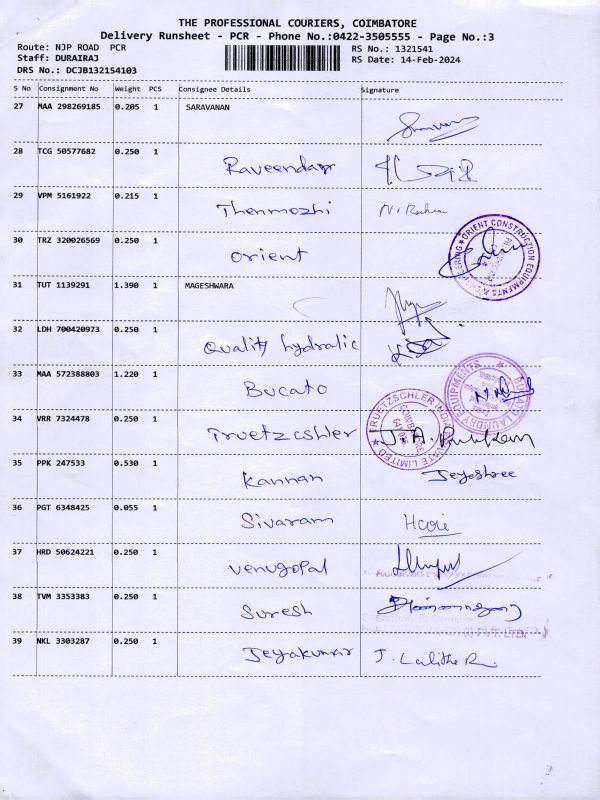 THE PROFESSIONAL COURIERS, COIMBATORE
Delivery Runsheet - PCR - Phone No.:0422-3505555 - Page No.:3
Route: NJP ROAD PCR RS No.: 1321541
Staff: DURAIRAJ RS Date: 14-Feb-2024
DRS No.: DCJB132154103
S No Consignment No Weight PCS Consignee Details Signature
27 MAA 298269185 0.205 1 SARAVANAN
28 TCG 50577682 0.250 1 Raveendar
29 VPM 5161922 0.215 1 Thenmozhi
30 TRZ 320026569 0.250 1 Orient
ORIENT CONSTRUCTION EQUIPMENTS &
31 TUT 1139291 1.390 1 MAGESHWARA
32 LDH 700420973 0.250 1 Quality hydralic
33 MAA 572388803 1.220 1 Bucato
BUCATO LAUNDRY EQUIPMENTS
34 VRR 7324478 0.250 1 Truetzcshler
TRUETZSCHLER INDIA PRIVATE LIMITED
COIMBATORE
35 PPK 247533 0.530 1 Kannan Jeyashree
36 PGT 6348425 0.055 1 Sivaram
37 HRD 50624221 0.250 1 Venugopal
38 TVM 3353383 0.250 1 Suresh
LTD.
39 NKL 3303287 0.250 1 Jeyakumar J. Lalitha